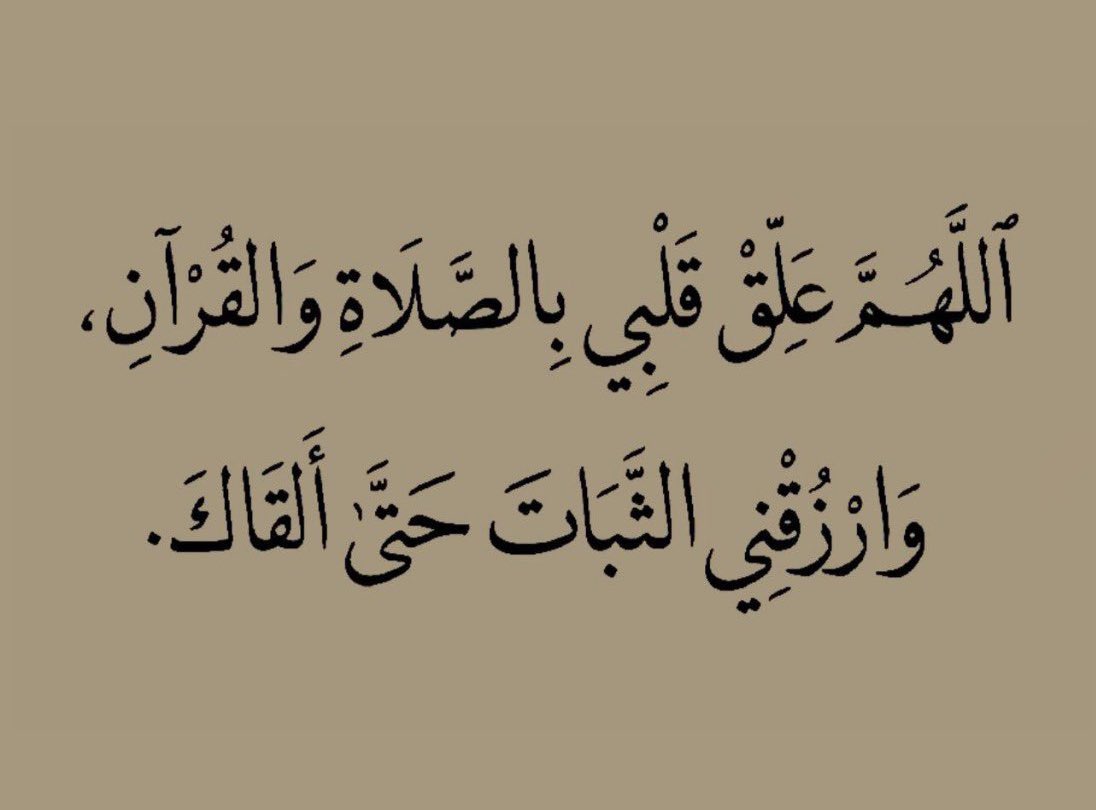 ٱللَّهُمَّ عَلِّقْ قَلْبِي بِالصَّلَاةِ وَالقُرْآنِ،
وَارْزُقْنِي الثَّبَاتَ حَتَّىٰ أَلقَاكَ.